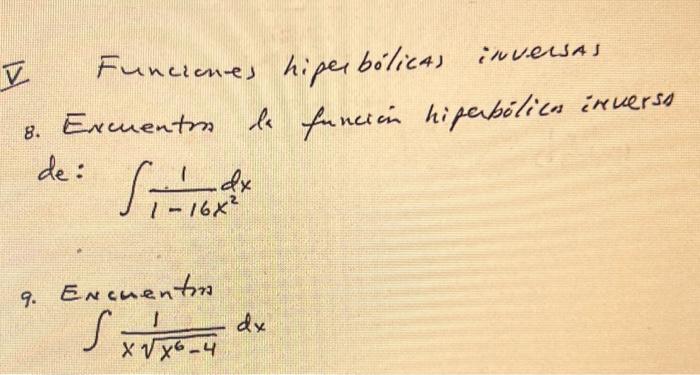 V Funciones hiperbólicas inversas
8. Encuentra la función hiperbólica inversa
de: ∫ 1/(1-16x²) dx
9. Encuentra
∫ 1/(x√(x⁶-4)) dx